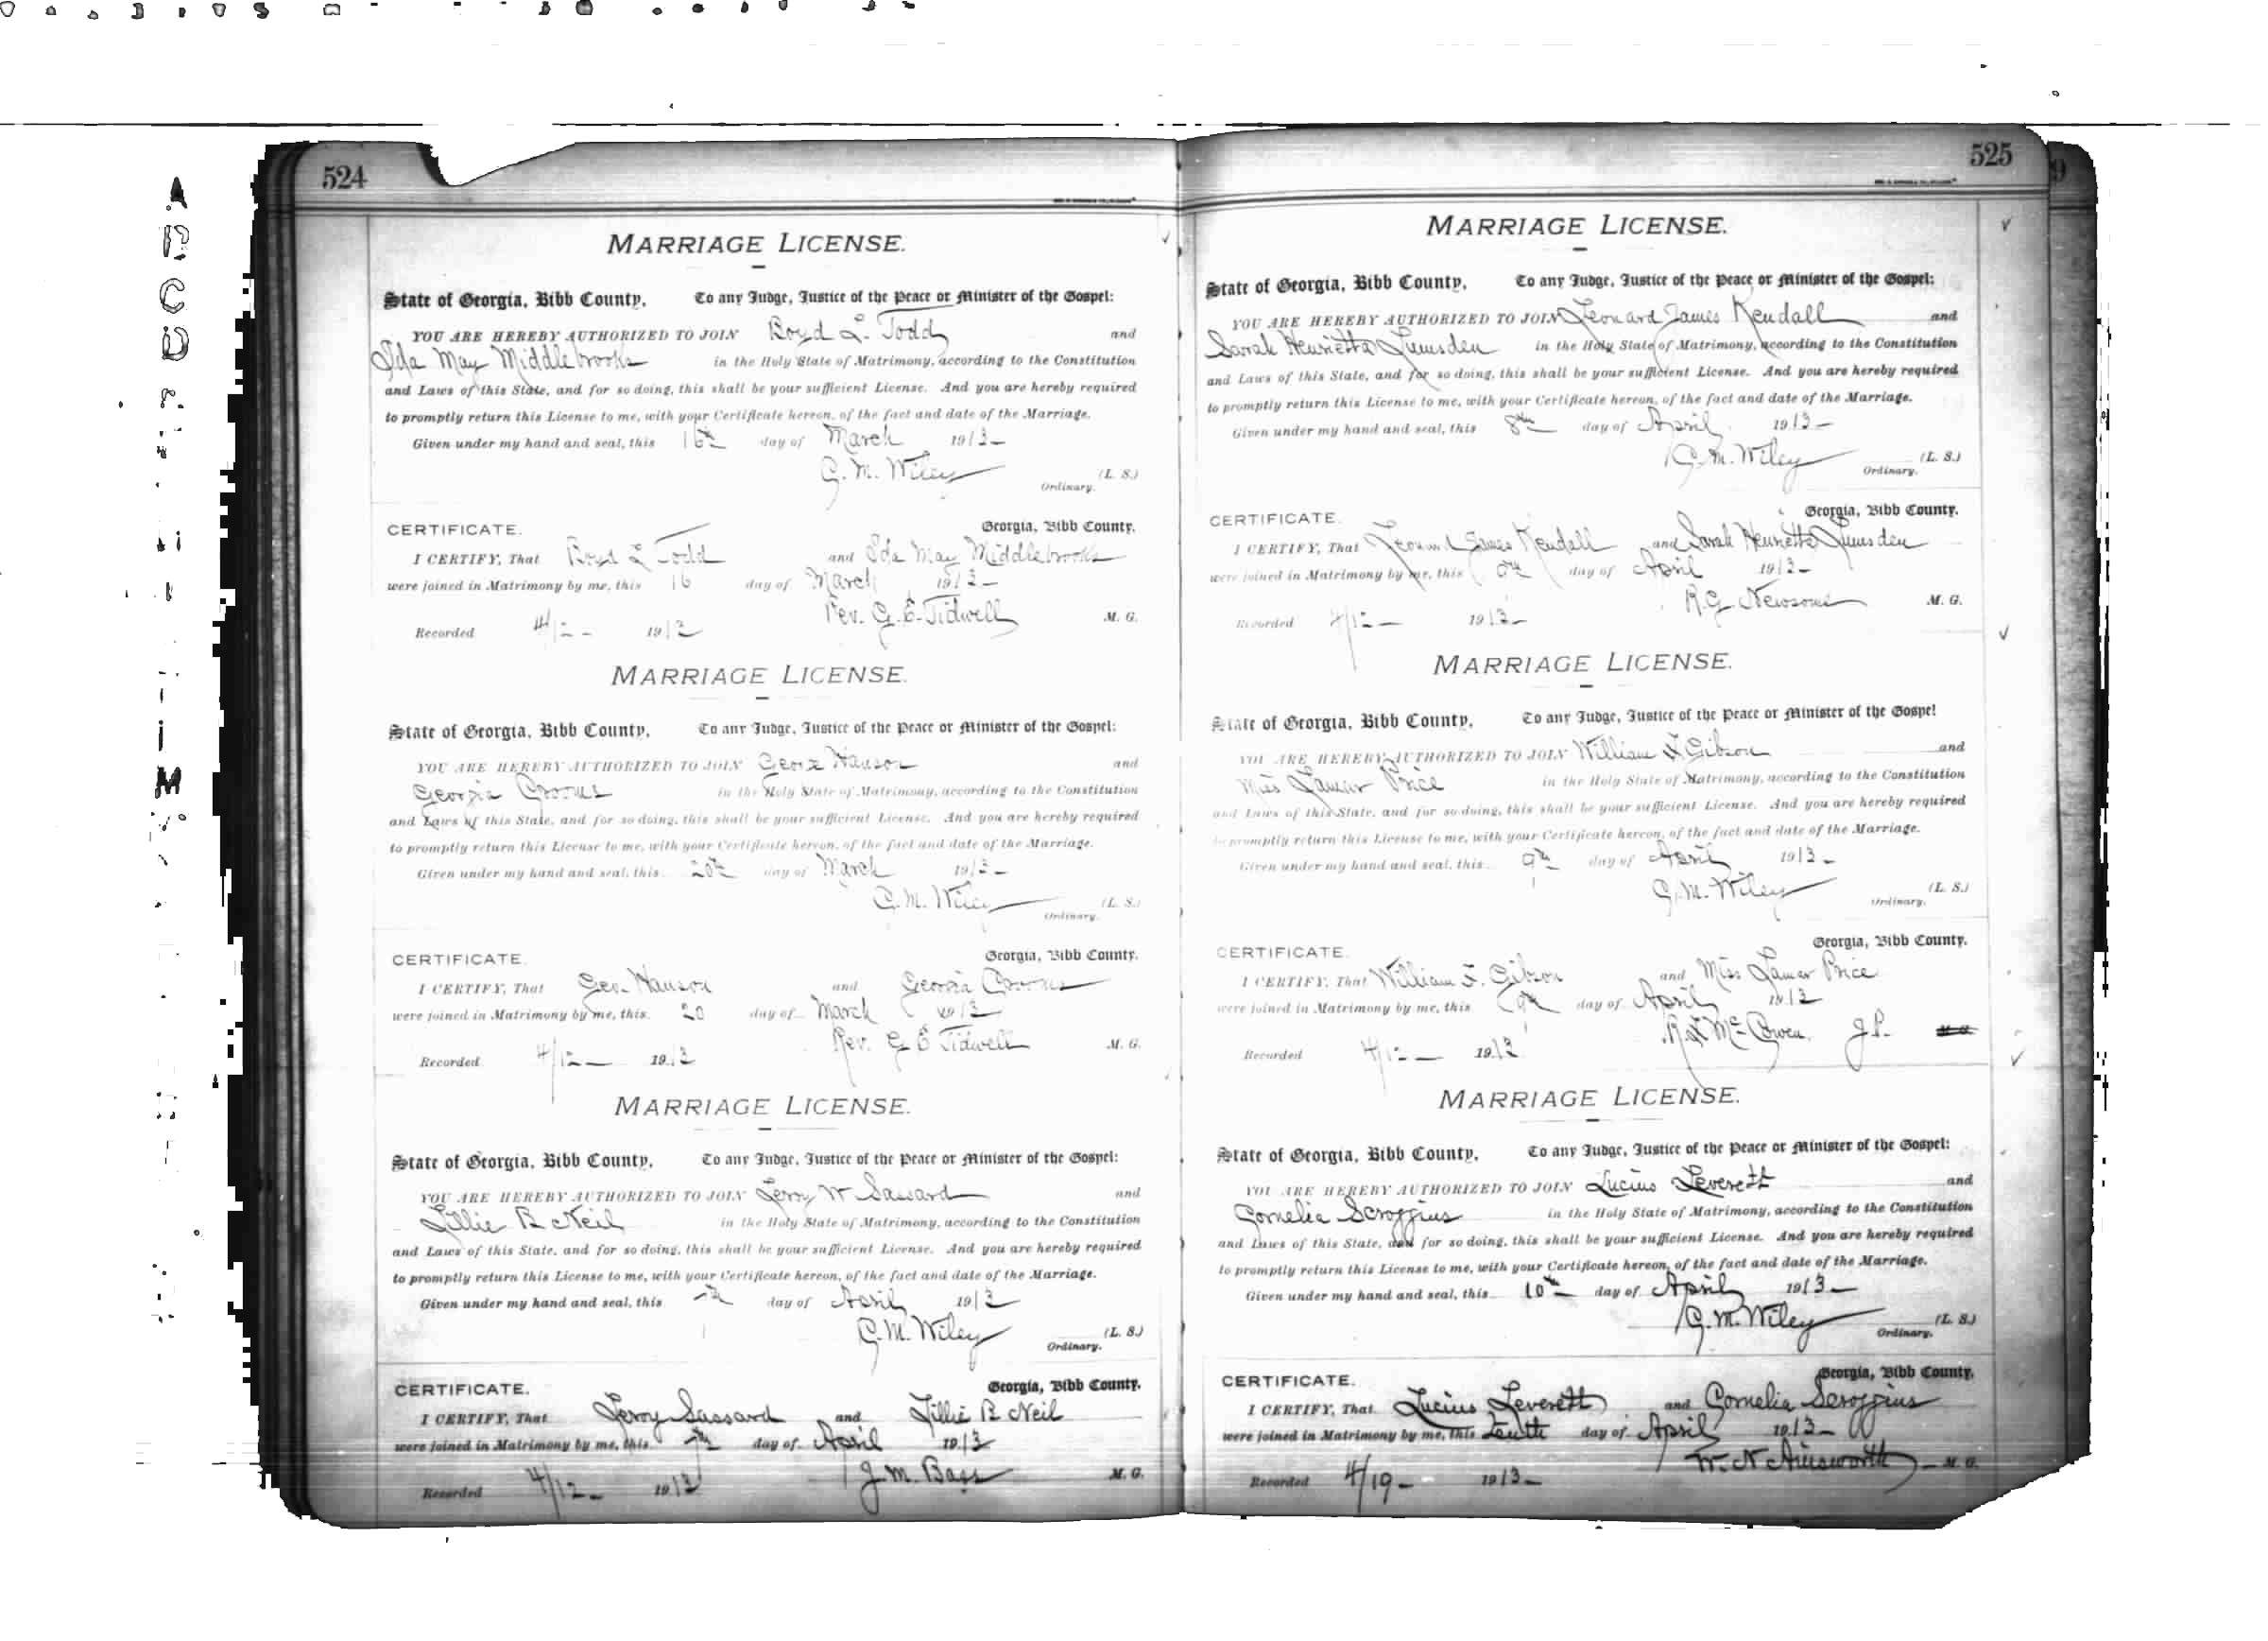 524
MARRIAGE LICENSE.
State of Georgia, Bibb County, To any Judge, Justice of the Peace or Minister of the Gospel:
YOU ARE HEREBY AUTHORIZED TO JOIN Boyd L. Todd and
Ida May Middlebrooks in the Holy State of Matrimony, according to the Constitution
and Laws of this State, and for so doing, this shall be your sufficient License. And you are hereby required
to promptly return this License to me, with your Certificate hereon, of the fact and date of the Marriage.
Given under my hand and seal, this 16th day of March 1913
C. M. Wiley (L. S.)
Ordinary.
CERTIFICATE. Georgia, Bibb County.
I CERTIFY, That Boyd L Todd and Ida May Middlebrooks
were joined in Matrimony by me, this 16 day of March 1913
Rev. G. E. Tidwell M. G.
Recorded 4/12 1913
MARRIAGE LICENSE.
State of Georgia, Bibb County, To any Judge, Justice of the Peace or Minister of the Gospel:
YOU ARE HEREBY AUTHORIZED TO JOIN George Hanson and
Georgia in the Holy State of Matrimony, according to the Constitution
and Laws of this State, and for so doing, this shall be your sufficient License. And you are hereby required
to promptly return this License to me, with your Certificate hereon, of the fact and date of the Marriage.
Given under my hand and seal, this 20th day of March 1913
C. M. Wiley (L. S.)
Ordinary.
CERTIFICATE. Georgia, Bibb County.
I CERTIFY, That Geo. Hanson and Georgia
were joined in Matrimony by me, this 20 day of March 1913
Rev. G E Tidwell M. G.
Recorded 4/12 1913
MARRIAGE LICENSE.
State of Georgia, Bibb County, To any Judge, Justice of the Peace or Minister of the Gospel:
YOU ARE HEREBY AUTHORIZED TO JOIN Leroy W Sassard and
Lillie B Neil in the Holy State of Matrimony, according to the Constitution
and Laws of this State, and for so doing, this shall be your sufficient License. And you are hereby required
to promptly return this License to me, with your Certificate hereon, of the fact and date of the Marriage.
Given under my hand and seal, this 7th day of April 1913
C. M. Wiley (L. S.)
Ordinary.
CERTIFICATE. Georgia, Bibb County.
I CERTIFY, That Leroy Sassard and Lillie B Neil
were joined in Matrimony by me, this 7th day of April 1913
J. M. Bass M. G.
Recorded 4/12 1913
525
MARRIAGE LICENSE.
State of Georgia, Bibb County, To any Judge, Justice of the Peace or Minister of the Gospel:
YOU ARE HEREBY AUTHORIZED TO JOIN Leonard James Kendall and
Sarah Henrietta Lumsden in the Holy State of Matrimony, according to the Constitution
and Laws of this State, and for so doing, this shall be your sufficient License. And you are hereby required
to promptly return this License to me, with your Certificate hereon, of the fact and date of the Marriage.
Given under my hand and seal, this 8th day of April 1913
C. M. Wiley (L. S.)
Ordinary.
CERTIFICATE. Georgia, Bibb County.
I CERTIFY, That Leonard James Kendall and Sarah Henrietta Lumsden
were joined in Matrimony by me, this 8th day of April 1913
R. G Newsome M. G.
Recorded 4/12 1913
MARRIAGE LICENSE.
State of Georgia, Bibb County, To any Judge, Justice of the Peace or Minister of the Gospel
YOU ARE HEREBY AUTHORIZED TO JOIN William F. Gibson and
Miss Lamar Price in the Holy State of Matrimony, according to the Constitution
and Laws of this State, and for so doing, this shall be your sufficient License. And you are hereby required
to promptly return this License to me, with your Certificate hereon, of the fact and date of the Marriage.
Given under my hand and seal, this 9th day of April 1913
C. M. Wiley (L. S.)
Ordinary.
CERTIFICATE. Georgia, Bibb County.
I CERTIFY, That William F. Gibson and Miss Lamar Price
were joined in Matrimony by me, this 9th day of April 1913
McCowen J.P.
Recorded 4/12 1913
MARRIAGE LICENSE.
State of Georgia, Bibb County, To any Judge, Justice of the Peace or Minister of the Gospel:
YOU ARE HEREBY AUTHORIZED TO JOIN Lucius Leverett and
Cornelia Scroggins in the Holy State of Matrimony, according to the Constitution
and Laws of this State, and for so doing, this shall be your sufficient License. And you are hereby required
to promptly return this License to me, with your Certificate hereon, of the fact and date of the Marriage.
Given under my hand and seal, this 10th day of April 1913
C. M. Wiley (L. S.)
Ordinary.
CERTIFICATE. Georgia, Bibb County.
I CERTIFY, That Lucius Leverett and Cornelia Scroggins
were joined in Matrimony by me, this Tenth day of April 1913
W. N Ainsworth M. G.
Recorded 4/19 1913